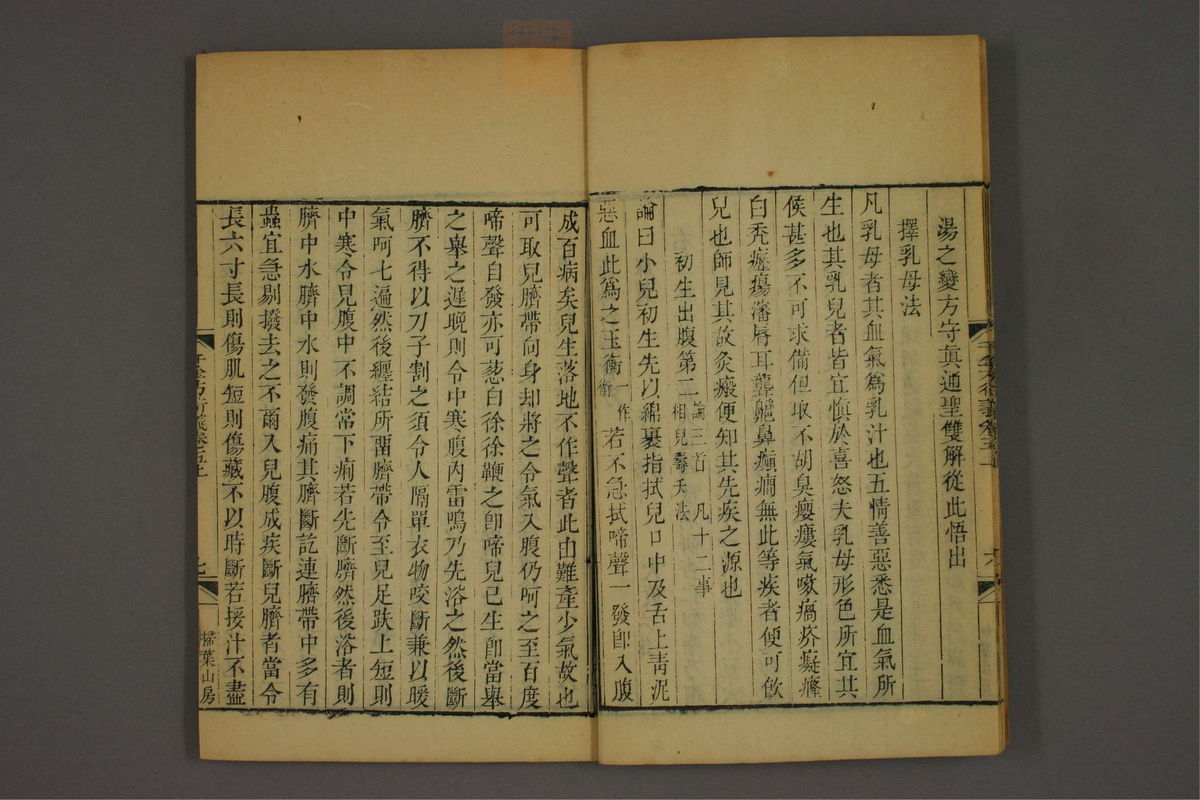 湯之變方守真通聖雙解從此悟出
擇乳母法
凡乳母者其血氣爲乳汁也五情善惡悉是血氣所
生也其乳兒者皆宜慎於喜怒夫乳母形色所宜其
候甚多不可求備但取不胡臭癭瘻氣嗽瘑疥癡癃
白禿癧瘍瀋唇耳聾齆鼻癲癇無此等疾者便可飲
兒也師見其故灸瘢便知其先疾之源也
初生出腹第二論三首 凡十二事
相兒壽夭法
論曰小兒初生先以綿裹指拭兒口中及舌上青泥
惡血此爲之玉衡一作銜若不急拭啼聲一發卽入腹
成百病矣兒生落地不作聲者此由難產少氣故也
可取兒臍帶向身却將之令氣入腹仍呵之至百度
啼聲自發亦可葱白徐徐鞭之卽啼兒已生卽當舉
之舉之遲晚則令中寒腹內雷鳴乃先浴之然後斷
臍不得以刀子割之須令人隔單衣物咬斷兼以暖
氣呵七遍然後纏結所畱臍帶令至兒足趺上短則
中寒令兒腹中不調常下痢若先斷臍然後浴者則
臍中水臍中水則發腹痛其臍斷訖連臍帶中多有
蟲宜急剔撥去之不爾入兒腹成疾斷兒臍者當令
長六寸長則傷肌短則傷藏不以時斷若挼汁不盡
千金方衍義卷五上
七
掃葉山房